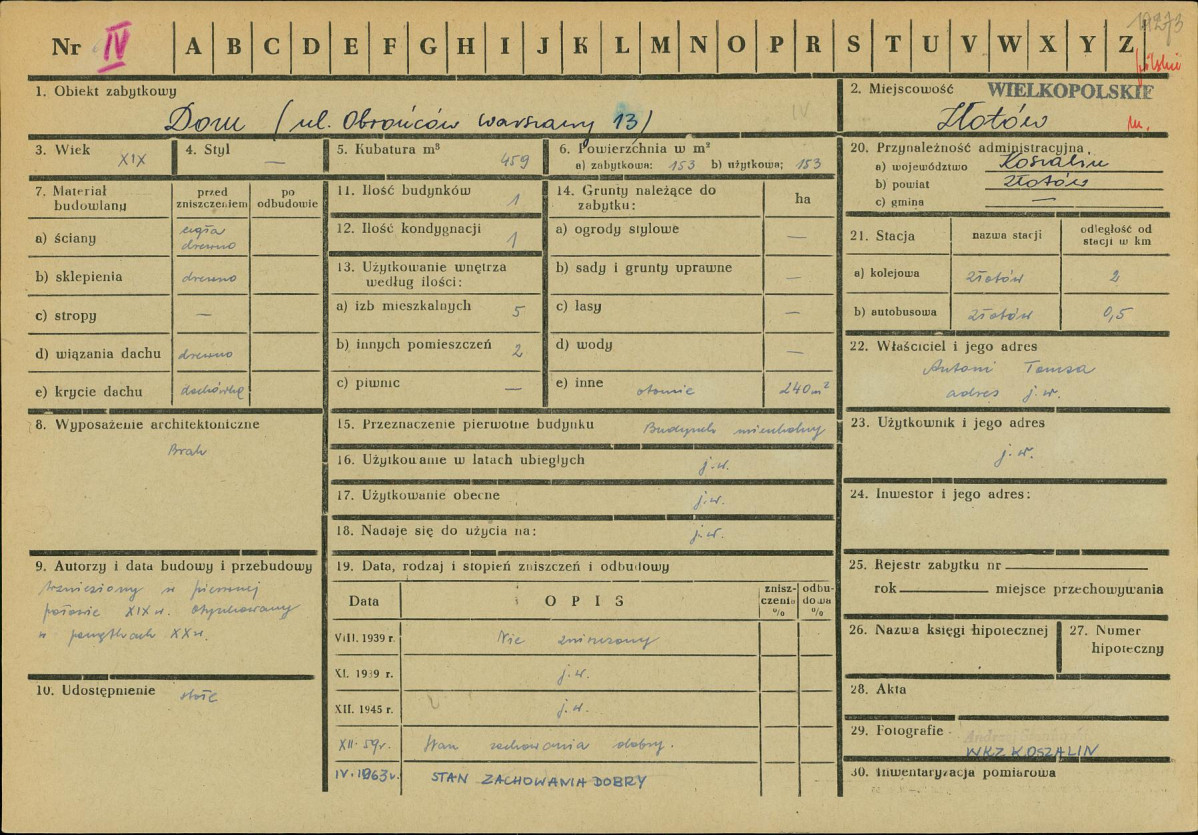 Nr IV A B C D E F G H I J K L M N O P R S T U V W X Y Z
1. Obiekt zabytkowy
Dom (ul. Obrońców Warszawy 13)
IV
2. Miejscowość WIELKOPOLSKIE
Złotów
3. Wiek XIX
4. Styl —
5. Kubatura m³ 459
6. Powierzchnia w m²
a) zabytkowa: 153 b) użytkowa: 153
20. Przynależność administracyjna
a) województwo Koszalin
b) powiat Złotów
c) gmina —
7. Materiał budowlany
przed zniszczeniem
po odbudowie
a) ściany cegła drewno
b) sklepienia drewno
c) stropy —
d) wiązania dachu drewno
e) krycie dachu dachówka
11. Ilość budynków 1
12. Ilość kondygnacji 1
13. Użytkowanie wnętrza według ilości:
a) izb mieszkalnych 5
b) innych pomieszczeń 2
c) piwnic —
14. Grunty należące do zabytku: ha
a) ogrody stylowe —
b) sady i grunty uprawne —
c) lasy —
d) wody —
e) inne 240 m²
21. Stacja
nazwa stacji
odległość od stacji w km
a) kolejowa Złotów 2
b) autobusowa Złotów 0,5
22. Właściciel i jego adres
Antoni Tomsa
adres j.w.
8. Wyposażenie architektoniczne
Brak
15. Przeznaczenie pierwotne budynku Budynek mieszkalny
16. Użytkowanie w latach ubiegłych j.w.
17. Użytkowanie obecne j.w.
18. Nadaje się do użycia na: j.w.
23. Użytkownik i jego adres
j.w.
24. Inwestor i jego adres:
9. Autorzy i data budowy i przebudowy
wzniesiony w pierwszej
połowie XIX w. Otynkowany
w początkach XX w.
10. Udostępnienie
19. Data, rodzaj i stopień zniszczeń i odbudowy
Data
OPIS
zniszczenia %
odbudowa %
VIII. 1939 r. Nie zniszczony
XI. 1939 r. j.w.
XII. 1945 r. j.w.
XII. 59 r. Stan zachowania dobry.
IV. 1963 r. STAN ZACHOWANIA DOBRY
25. Rejestr zabytku nr
rok miejsce przechowywania
26. Nazwa księgi hipotecznej
27. Numer hipoteczny
28. Akta
29. Fotografie
WKZ KOSZALIN
30. Inwentaryzacja pomiarowa